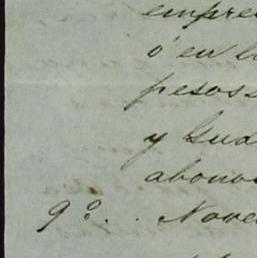 empre
ó en l
pesos
y Gua
abono
9º. . Nove